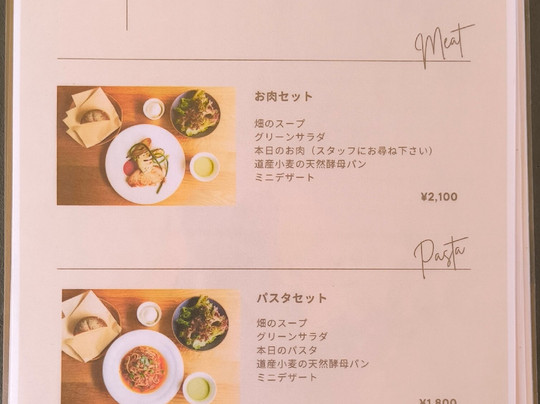 Meat
お肉セット
畑のスープ
グリーンサラダ
本日のお肉（スタッフにお尋ね下さい）
道産小麦の天然酵母パン
ミニデザート
¥2,100
Pasta
パスタセット
畑のスープ
グリーンサラダ
本日のパスタ
道産小麦の天然酵母パン
ミニデザート
¥1,800